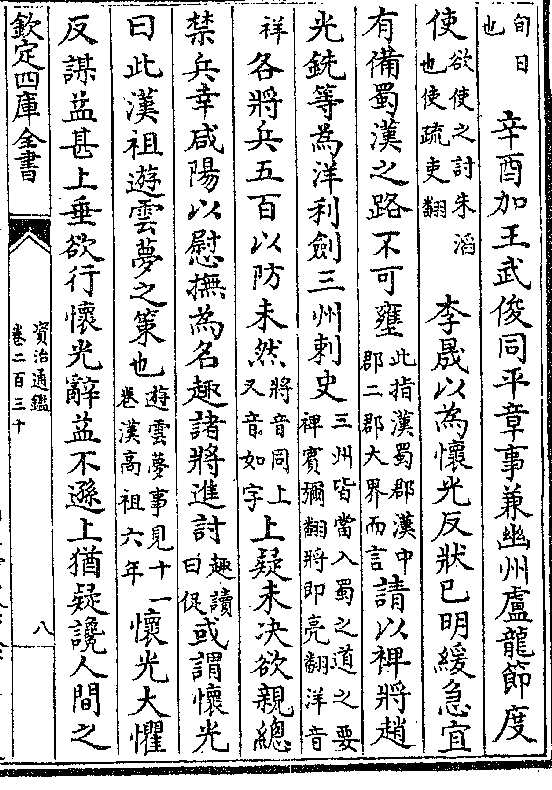 旬日也　辛酉加王武俊同平章事兼幽州盧龍節度
使欲使之討朱滔也使疏吏翻　李晟以為懷光反狀已明緩急宜
有備蜀漢之路不可壅此指漢蜀郡漢中郡二郡大界而言請以裨將趙
光銑等為洋利劍三州刺史三州皆當入蜀之道之要裨賓彌翻將即亮翻洋音
祥各將兵五百以防未然將音同上又音如字上疑未决欲親總
禁兵幸咸陽以慰撫為名趣諸將進討趣讀曰促或謂懷光
曰此漢祖遊雲夢之策也遊雲夢事見十一卷漢高祖六年懷光大懼
反謀益甚上垂欲行懷光辭益不遜上猶疑讒人間之
欽定四庫全書
資治通鑑
卷二百三十
八